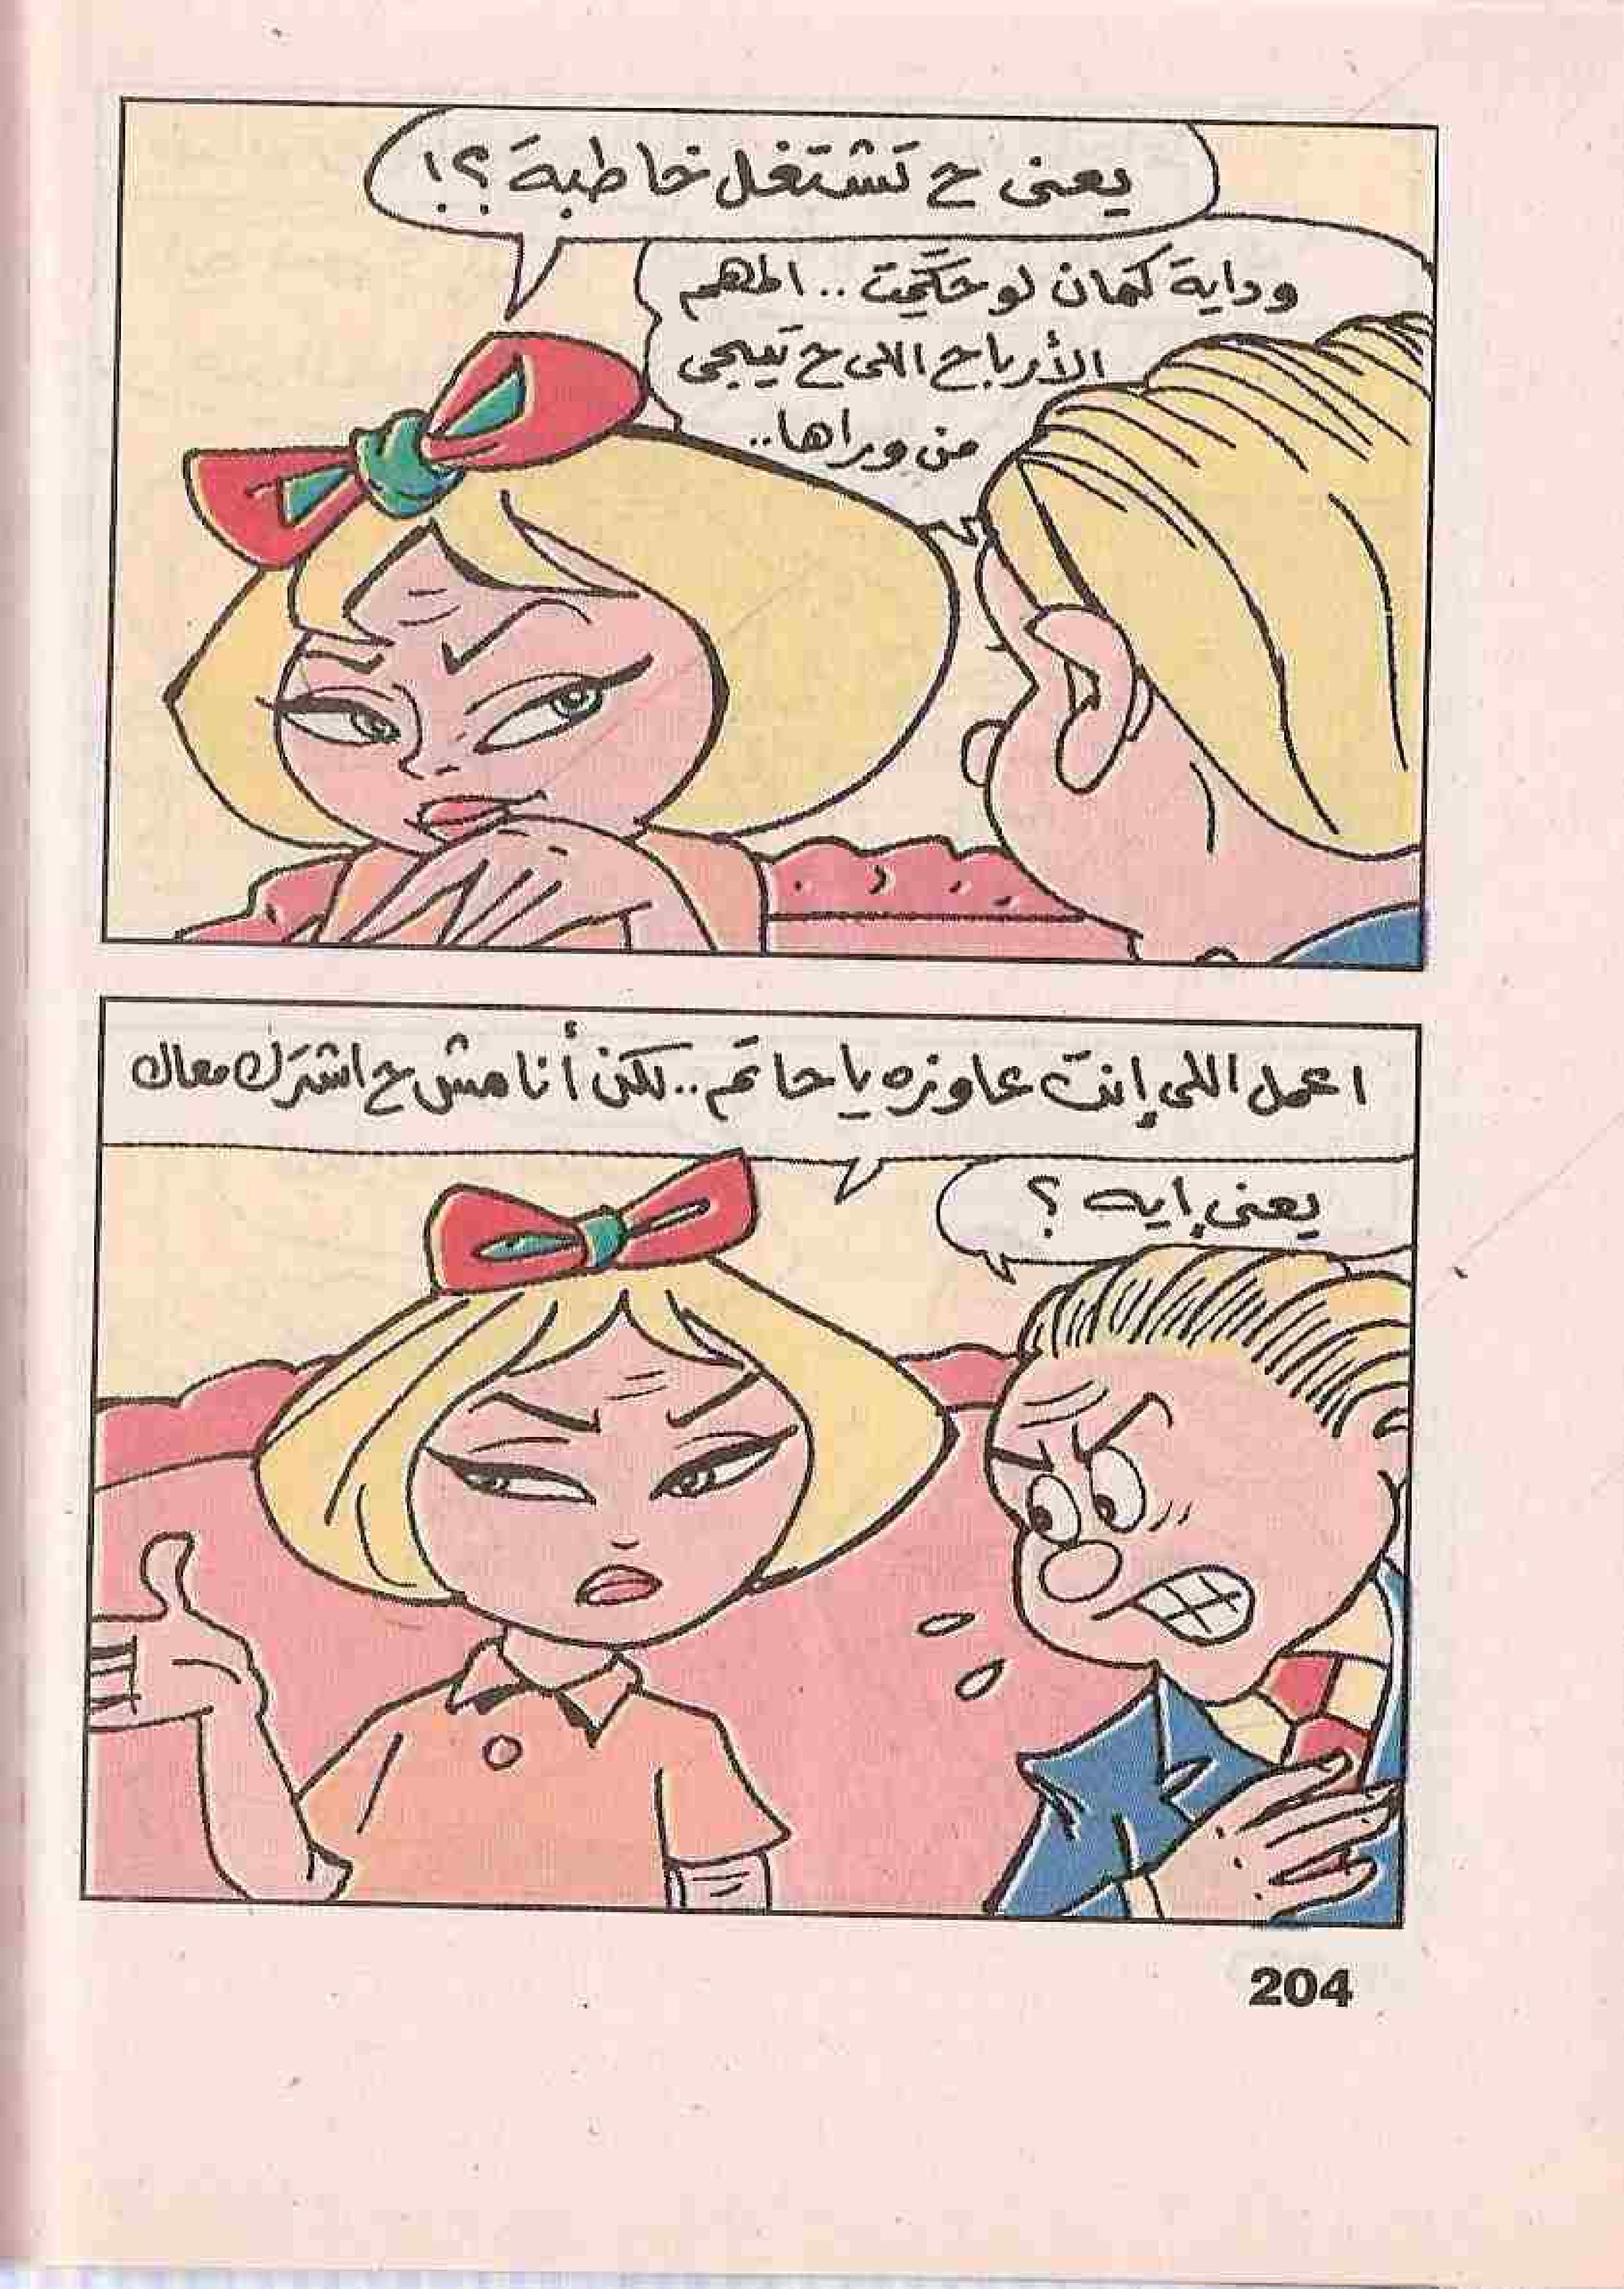 يعنى ح تشتغل خاطبة؟!
وداية كمان لو حكمت.. المهم
الأرباح اللى ح تيجى
من وراها..
اعمل اللى إنت عاوزه يا حاتم.. لكن أنا مش ح اشترك معاك
يعنى إيه؟
204